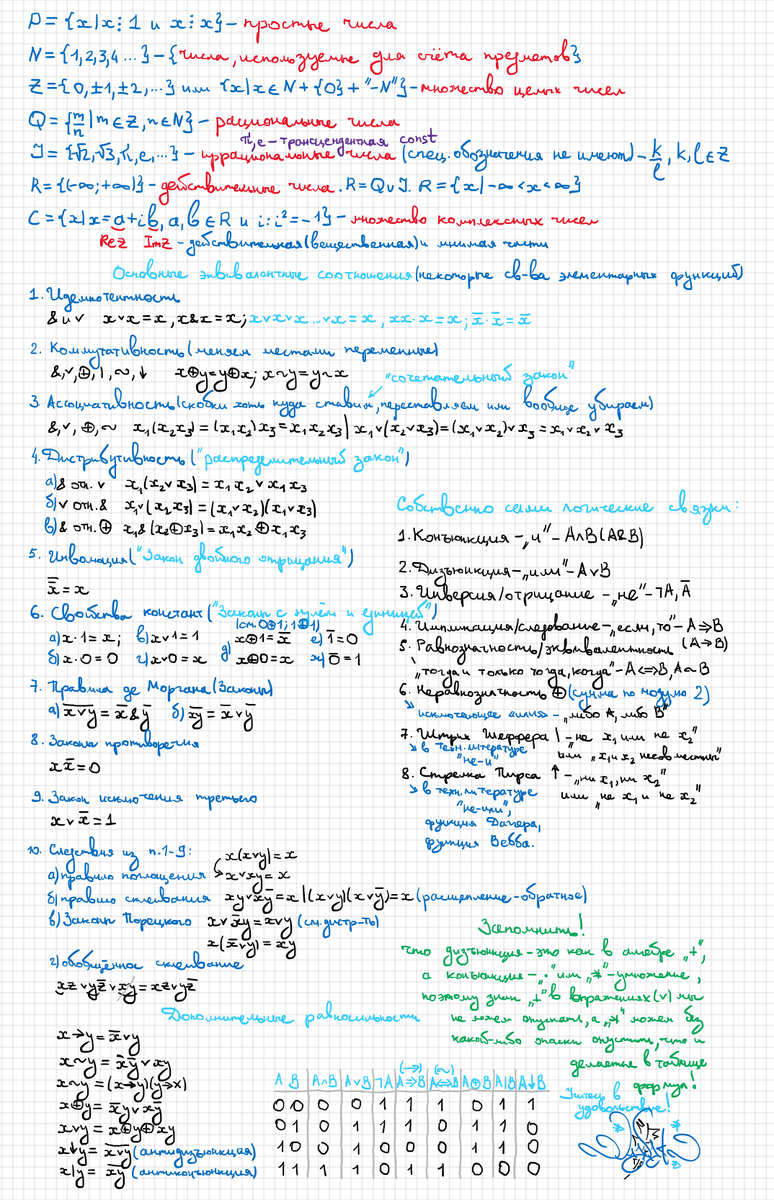 P = {x|x⋮1 и x⋮x} – простые числа
N = {1,2,3,4 ...} – {числа, используемые для счёта предметов}
Z = {0,±1,±2,...} или {x|x∈N + {0} + "-N"} – множество целых чисел
Q = {m/n | m∈Z, n∈N} – рациональные числа
π, e – трансцендентная const
J = {√2,√3,π,e,...} – иррациональные числа (спец. обозначения не имеют) – k/l, k,l∈Z
R = {(-∞;+∞)} – действительные числа. R = Q∨J. R = {x|-∞<x<∞}
C = {x|x=a+ib, a,b∈R и i: i²=-1} – множество комплексных чисел
ReZ ImZ – действительная (вещественная) и мнимая части
Основные эквивалентные соотношения (некоторые св-ва элементарных функций)
1. Идемпотентность
& и ∨ x∨x=x, x&x=x; x∨x∨x...∨x=x, xx·x=x; x̄·x̄=x̄
2. Коммутативность (меняем местами переменные)
&,∨,⊕,|,~,↓ x⊕y=y⊕x; x~y=y~x
"сочетательный закон"
3. Ассоциативность (скобки хоть куда ставим, переставляем или вообще убираем)
&,∨,⊕,~ x₁(x₂x₃)=(x₁x₂)x₃=x₁x₂x₃ | x₁∨(x₂∨x₃)=(x₁∨x₂)∨x₃=x₁∨x₂∨x₃
4. Дистрибутивность ("распределительный закон")
а) & отн. ∨ x₁(x₂∨x₃)=x₁x₂∨x₁x₃
б) ∨ отн. & x₁∨(x₂x₃)=(x₁∨x₂)(x₁∨x₃)
в) & отн. ⊕ x₁&(x₂⊕x₃)=x₁x₂⊕x₁x₃
5. Инволюция ("Закон двойного отрицания")
x̿=x
6. Свойства констант ("Законы с нулём и единицей")
(см. 0⊕1; 1⊕1)
а) x·1=x; в) x∨1=1 д) x⊕1=x̄ е) 1̄=0
б) x·0=0 г) x∨0=x x⊕0=x ж) 0̄=1
7. Правила де Моргана (Законы)
а) \overline{x∨y}=x̄&ȳ б) \overline{xy}=x̄∨ȳ
8. Закона противоречия
xx̄=0
9. Закон исключения третьего
x∨x̄=1
10. Следствия из п.1-9:
x(x∨y)=x
а) правило поглощения x∨xy=x
б) правило склеивания xy∨xȳ=x | (x∨y)(x∨ȳ)=x (расщепление – обратное)
в) Законы Порецкого x∨x̄y=x∨y (см. дистр-ть)
x(x̄∨y)=xy
г) обобщённое склеивание
xz∨yz̄∨xy=xz∨yz̄
Собственно сами логические связки:
1. Конъюнкция – „и" – A∧B (A&B)
2. Дизъюнкция – „или" – A∨B
3. Инверсия/отрицание – „не" – ¬A, Ā
4. Импликация/следование – „если, то" – A⇒B
(A→B)
5. Равнозначность/эквивалентность
„тогда и только тогда, когда" – A⇔B, A~B
6. Неравнозначность ⊕ (сумма по модулю 2)
исключающее «или» – „либо A, либо B"
7. Штрих Шеффера | – „не x₁ или не x₂"
в техн. литературе "не-и"
или „x₁ и x₂ несовместны"
8. Стрелка Пирса ↑ – „ни x₁, ни x₂"
в техн. литературе "не-или",
или „не x₁ и не x₂"
функция Даггера,
функция Вебба.
Запомнить!
что дизъюнкция – это как в алгебре „+",
а конъюнкция – „·" или „*" – умножение,
поэтому знак „+" в выражениях (∨) мы
не можем опускать, а „*" можем без
какой-либо опаски опустить, что и
делается в таблице
формул!
Учитесь в
удовольствие!
Дополнительные равносильности
x→y=x̄∨y
x~y=x̄ȳ∨xy
x~y=(x→y)(y→x)
x⊕y=x̄y∨xȳ
x∨y=x⊕y⊕xy
x↓y=\overline{x∨y} (антидизъюнкция)
x|y=\overline{xy} (антиконъюнкция)
(→) (~)
A B A∧B A∨B ¬A A⇒B A⇔B A⊕B A|B A↓B
0 0 0 0 1 1 1 0 1 1
0 1 0 1 1 1 0 1 1 0
1 0 0 1 0 0 0 1 1 0
1 1 1 1 0 1 1 0 0 0